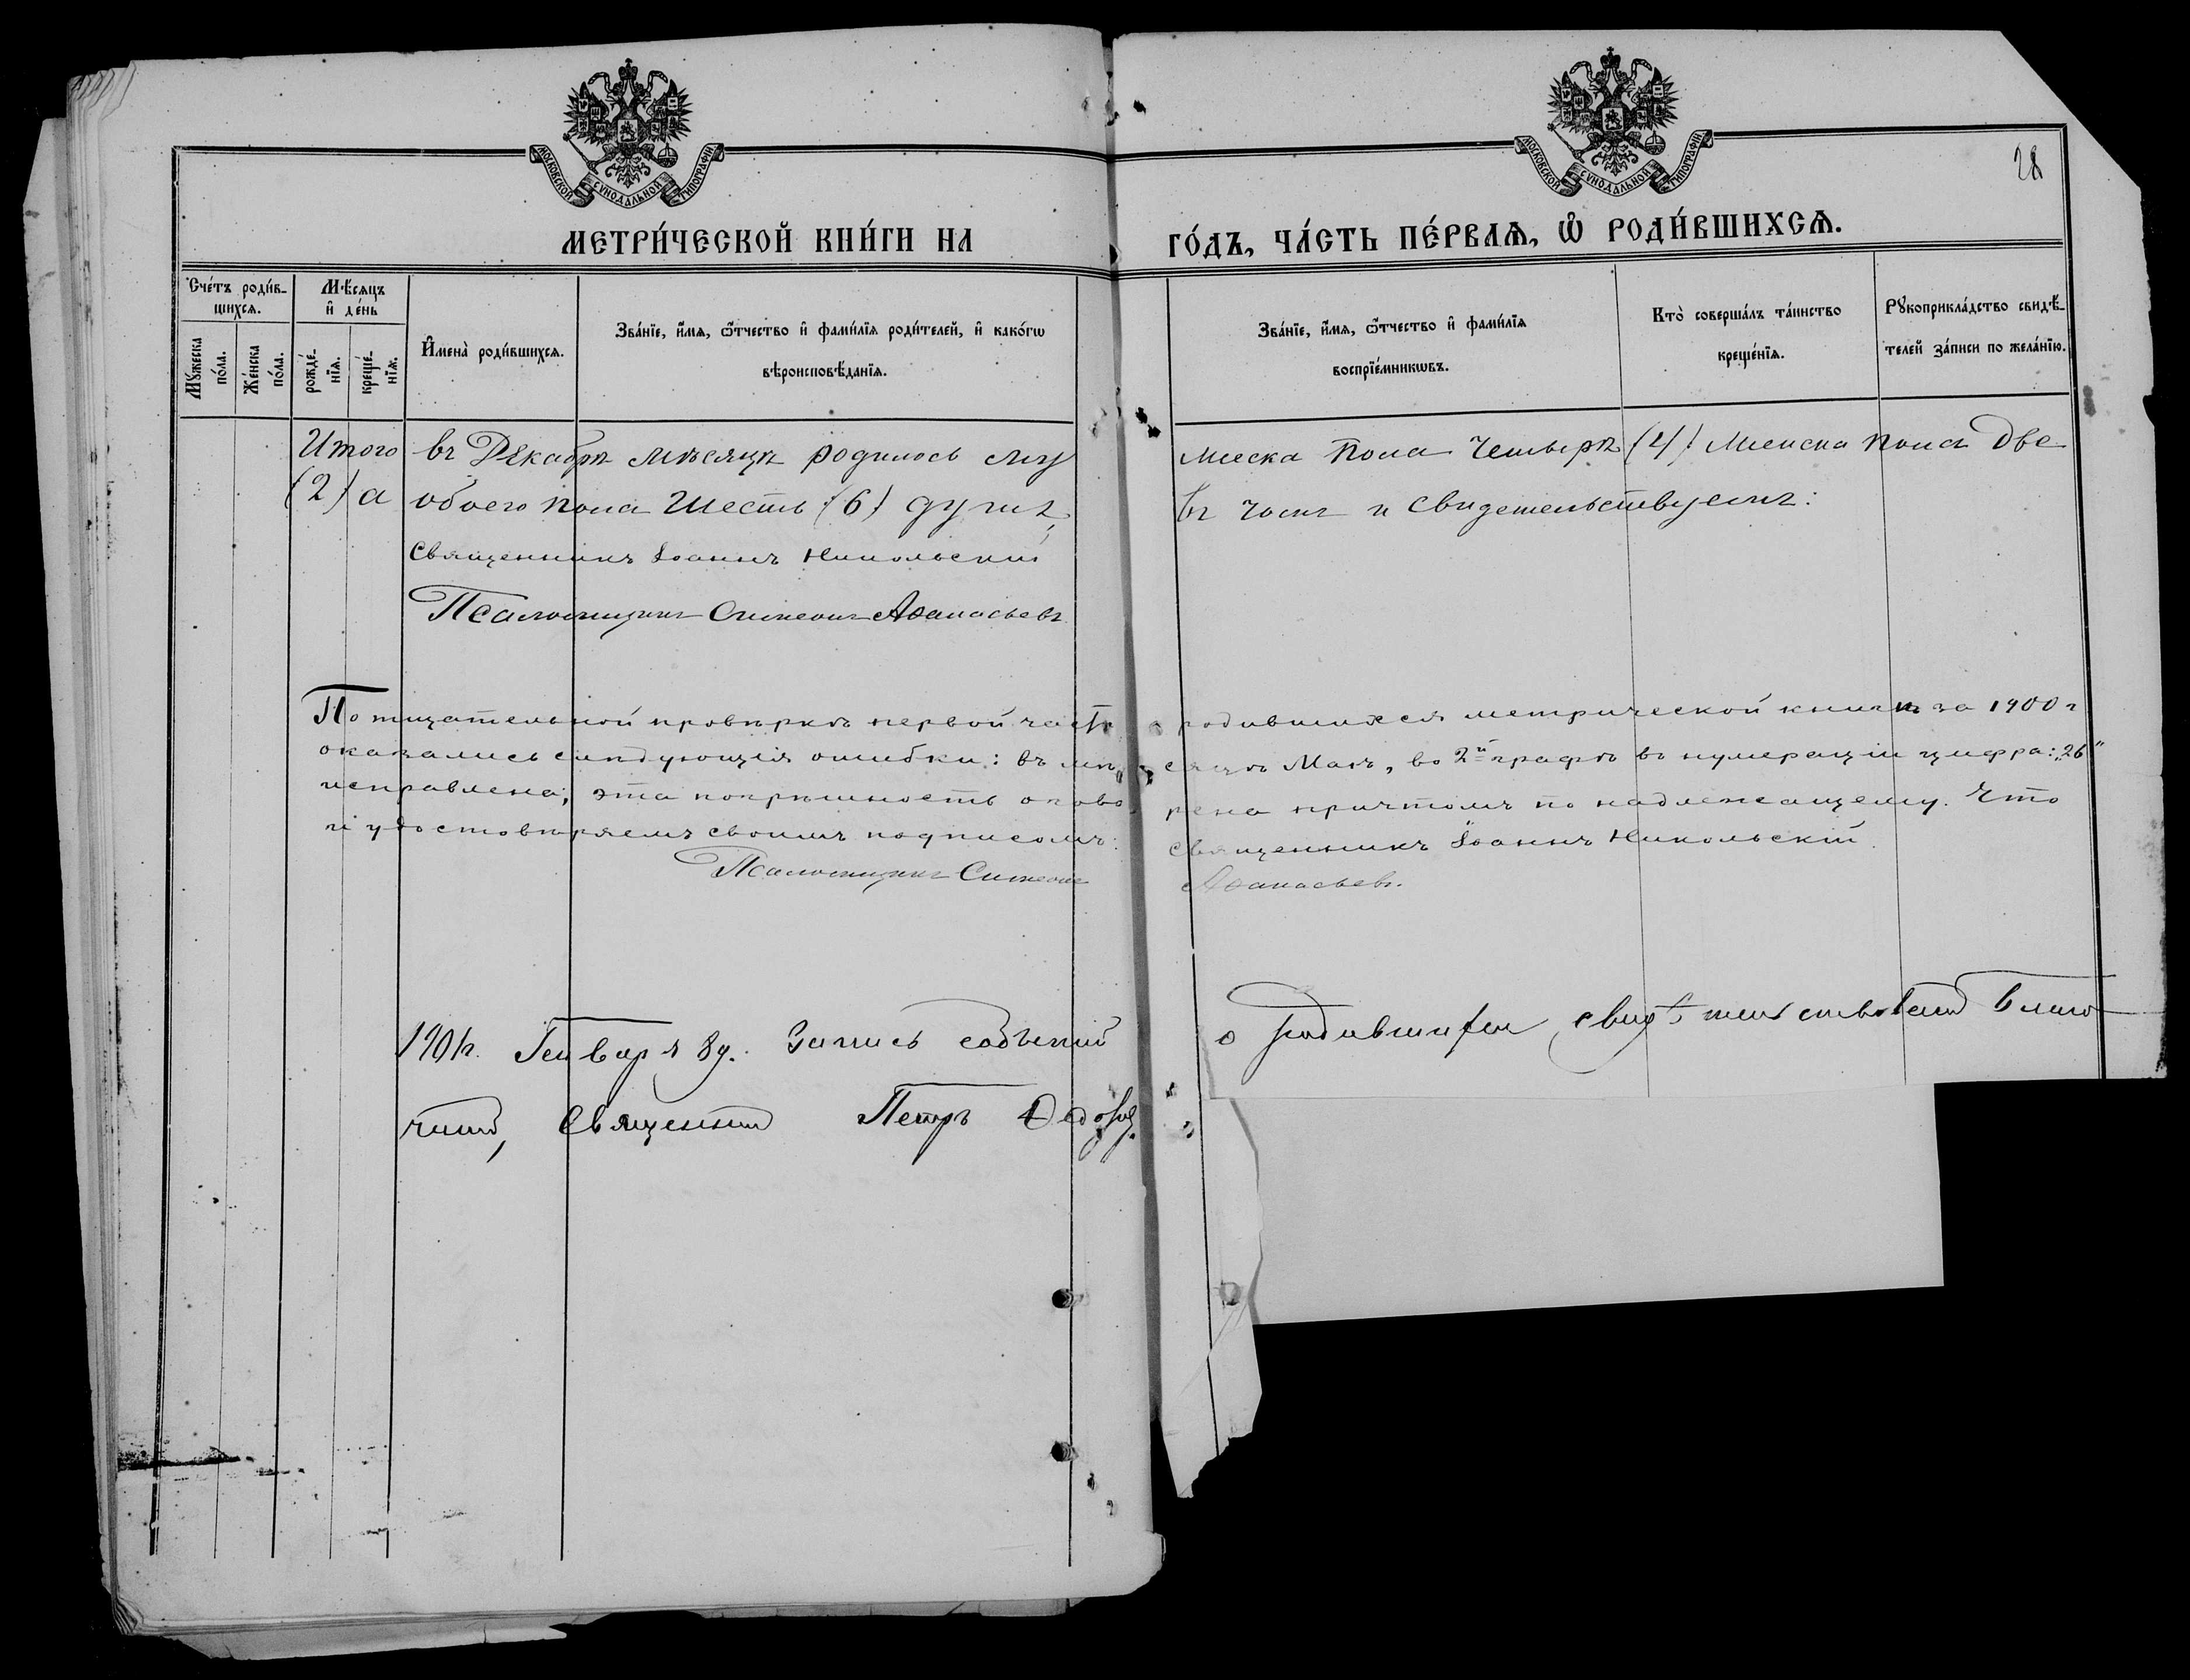 МОСКОВСКОЙ СѴНОДАЛЬНОЙ ТИПОГРАФІИ
МОСКОВСКОЙ СѴНОДАЛЬНОЙ ТИПОГРАФІИ
28
МЕТРИ́ЧЕСКОЙ КНИ́ГИ НА
ГО́ДЪ, ЧА́СТЬ ПЕ́РВАѦ, Ѡ҆ РОДИ́ВШИХСѦ.
Сче́тъ роди́в-
шихсѧ.
Мꙋ́жеска
по́ла.
Же́нска
по́ла.
Мѣ́сѧцъ
и҆ де́нь
рожде́-
нїѧ.
креще́-
нїѧ.
И҆мена̀ роди́вшихсѧ.
Зва́нїе, и҆́мѧ, ѻ҆́тчество и҆ фами́лїѧ роди́телей, и҆ како́гѡ
вѣроисповѣ́данїѧ.
Зва́нїе, и҆́мѧ, ѻ҆́тчество и҆ фами́лїѧ
воспрїе́мникѡвъ.
Кто̀ соверша́лъ та́инство
креще́нїѧ.
Рꙋкоприкла́дство свидѣ́-
телей за́писи по жела́нїю.
Итого въ Декабрѣ мѣсяцѣ родилось му
жеска пола четыре (4) женска пола две
(2) а обоего пола шесть (6) душъ,
въ чемъ и свидетельствуемъ:
Священникъ Іоаннъ Никольскій
Псаломщикъ Симеонъ Аѳанасьевъ
По тщательной провѣркѣ первой части
о родившихся метрической книги за 1900 г
оказались слѣдующія ошибки: въ мѣ
сяцѣ Маѣ, во 2й графѣ въ нумераціи цифра: „26"
исправлена; эта погрѣшность огово
рена причтомъ по надлежащему. Что
и удостовѣряемъ своимъ подписомъ:
Священникъ Іоаннъ Никольскій
Псаломщикъ Симеонъ
Аѳанасьевъ.
1901г. Генваря 8д. Запись
о родившихся свидѣтельствовалъ Благо
чинный, Священникъ Петръ